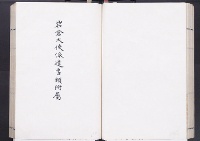 岩倉大使派遣書類附属